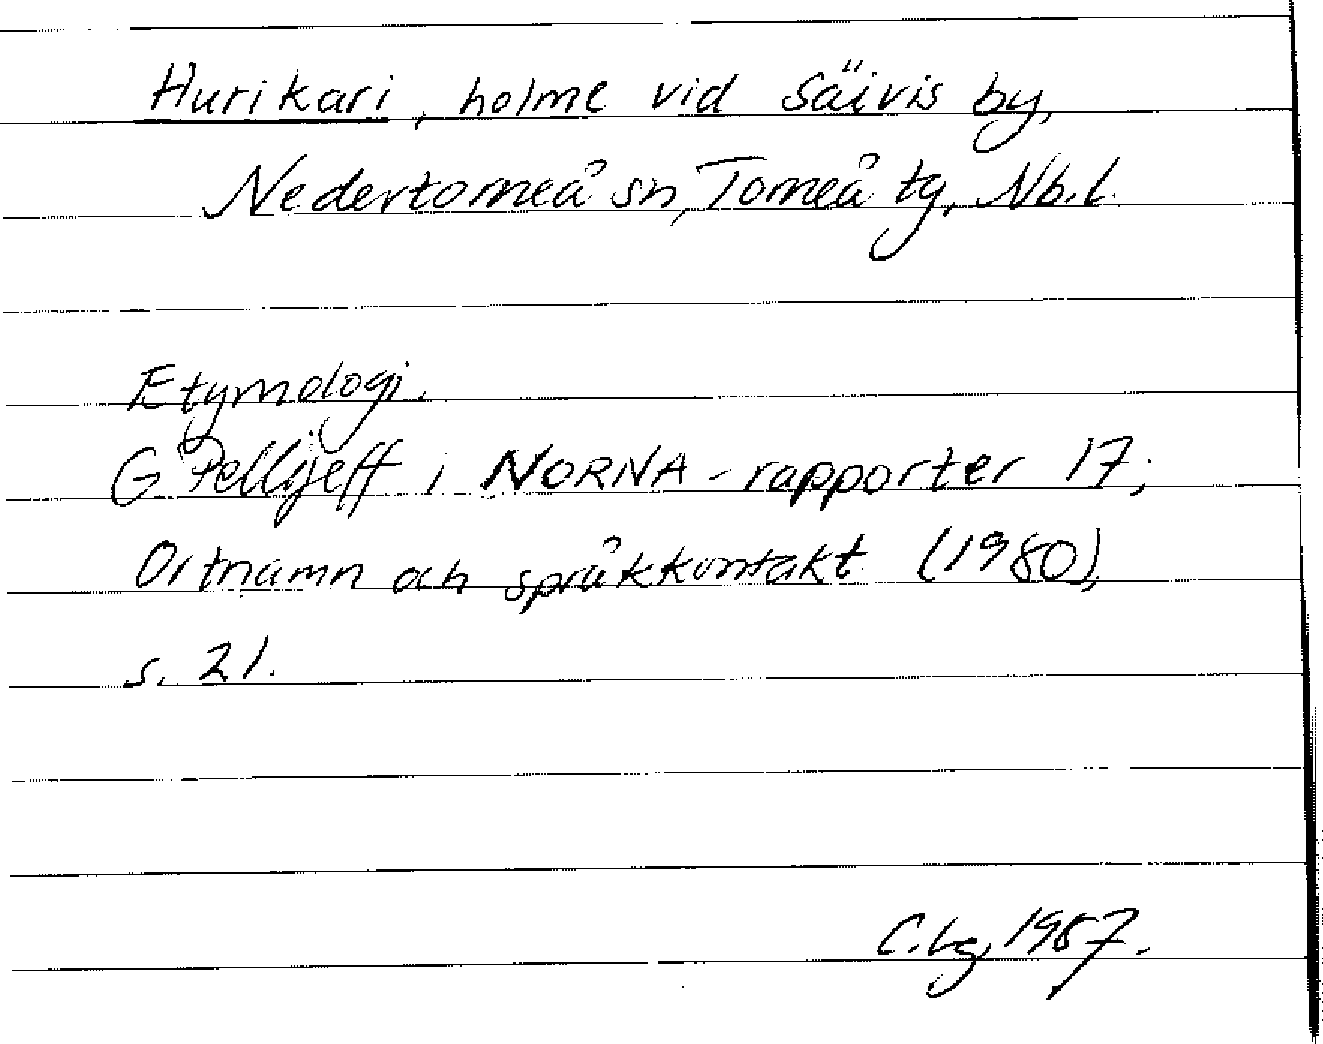 Hurikari, holme vid Säivis by,
Nedertorneå sn, Torneå tg, Nb.l.
Etymologi.
G Pellijeff i NORNA-rapporter 17;
Ortnamn och språkkontakt (1980),
s. 21.
C.Lg, 1987.